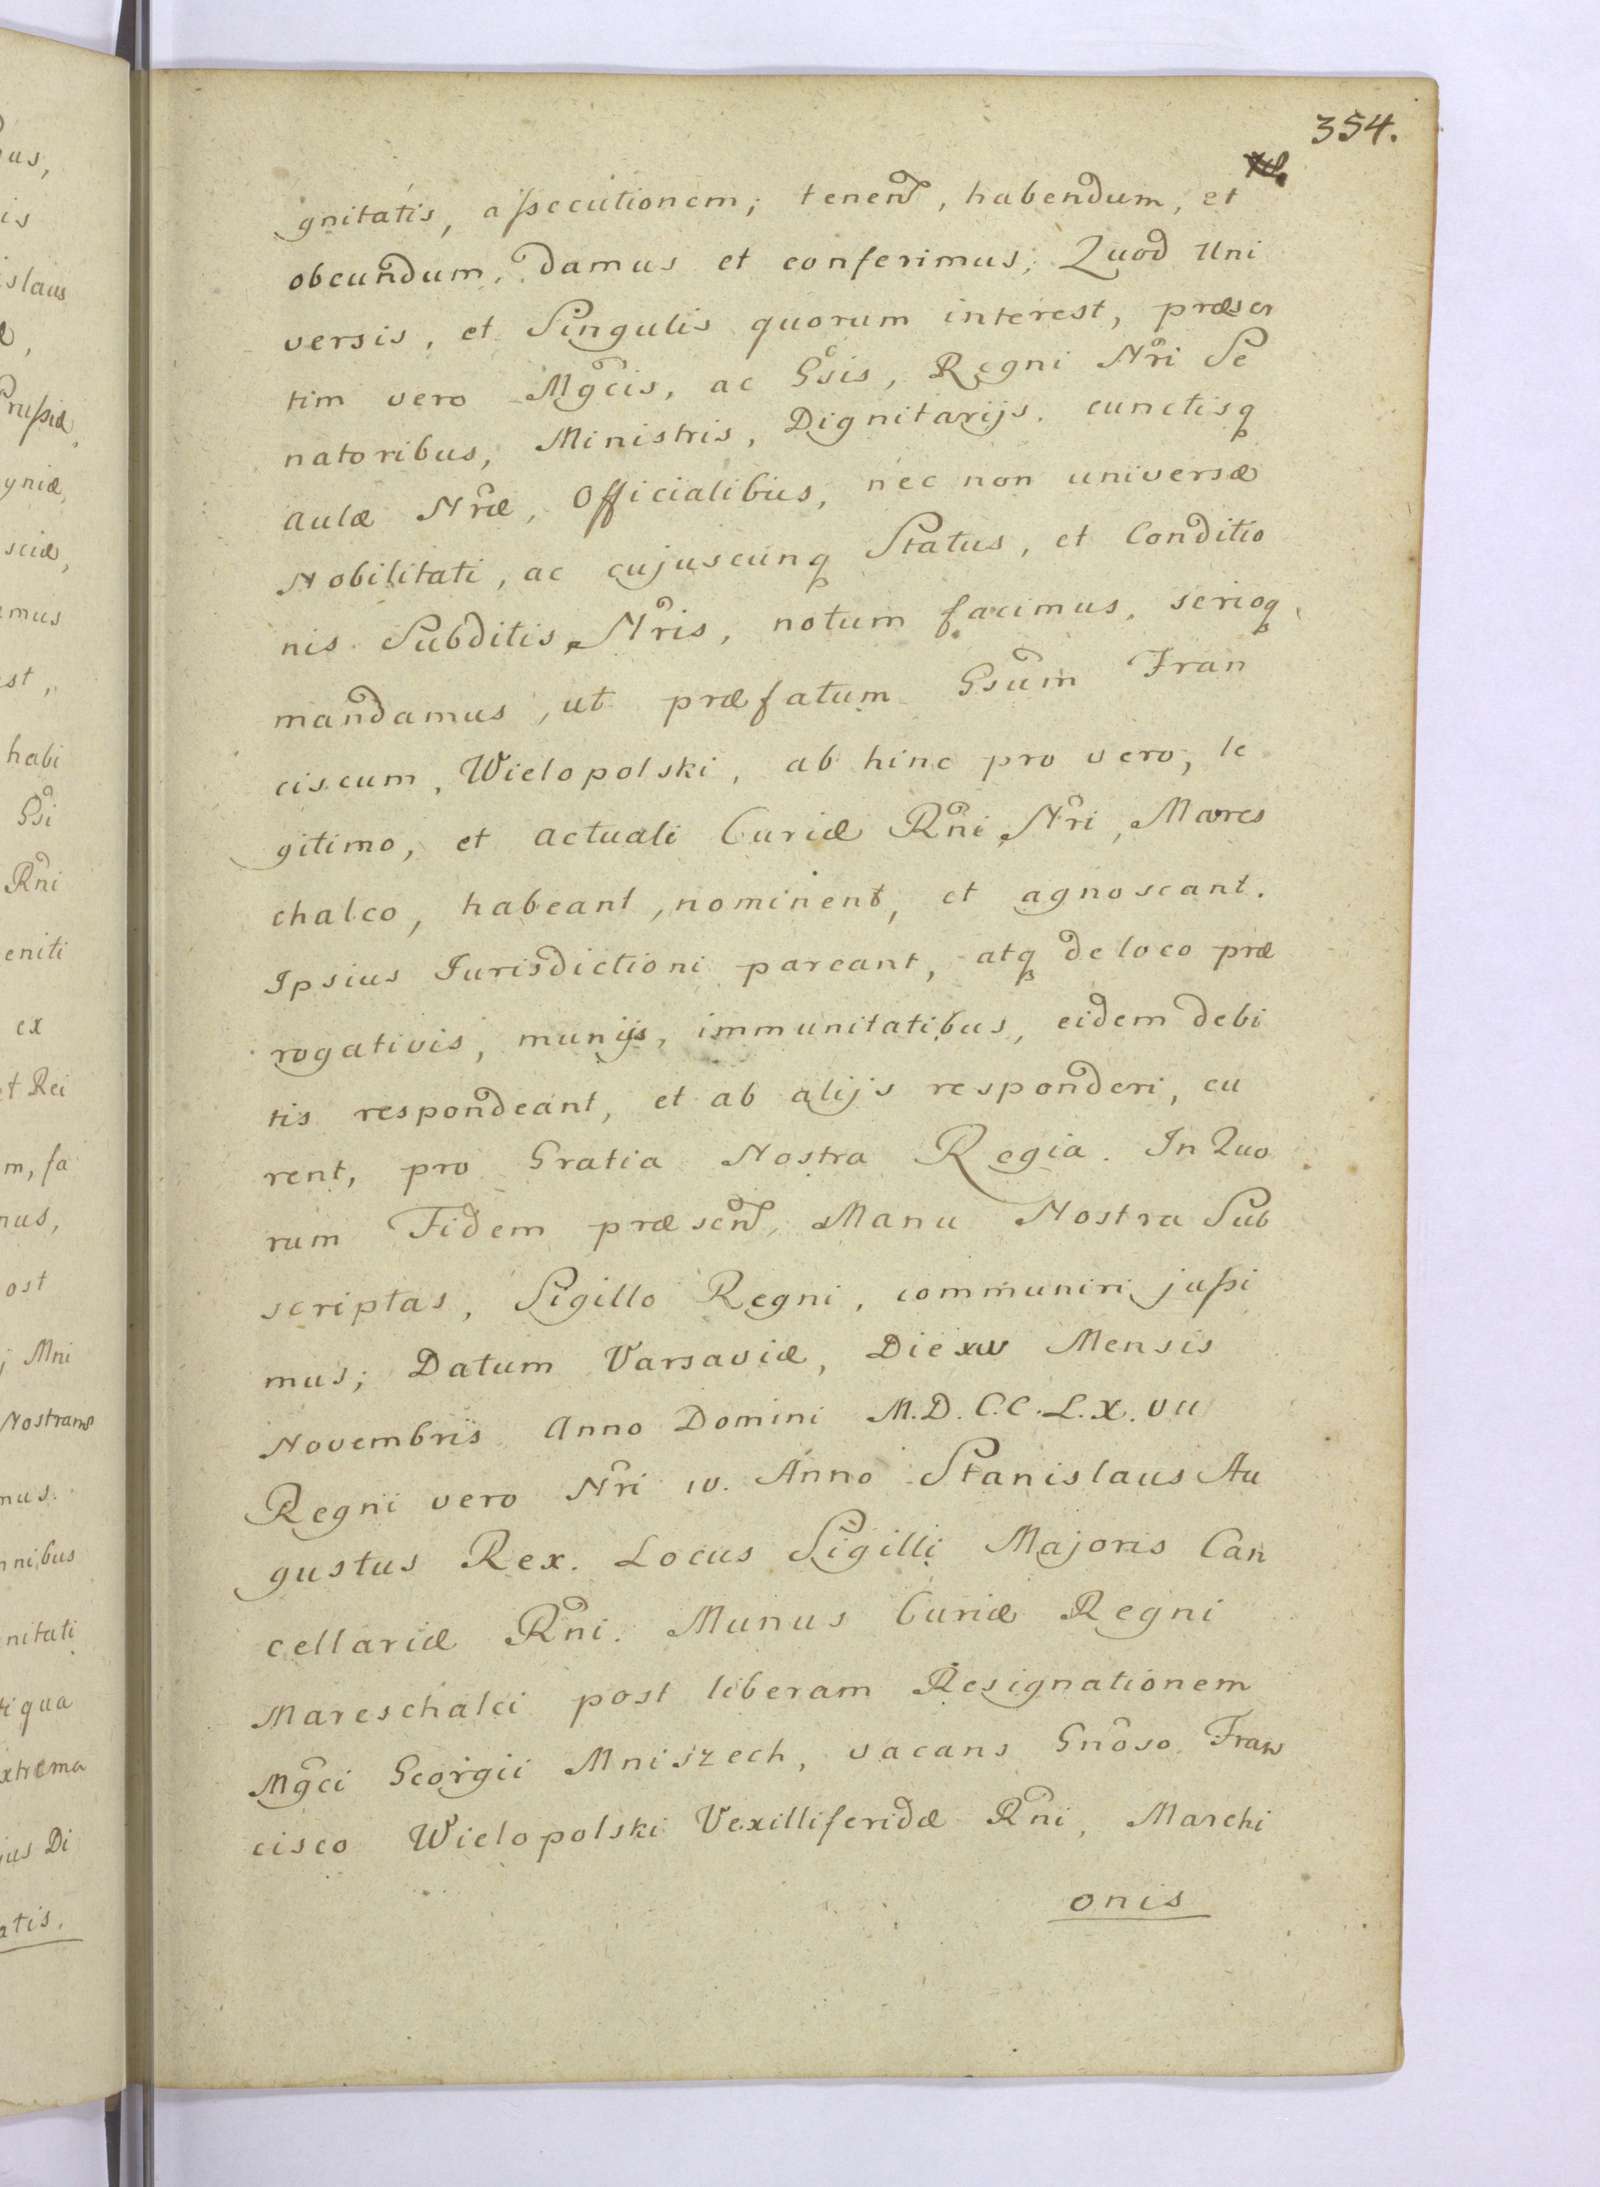 354.
gnitatis, assecutionem, tenend, habendum, et
obeundum, damus et conferimus; Quod Uni
versis, et Singulis quorum interest, præser
tim vero Mgcis, ac Gsis, Regni Nri Se
natoribus, Ministris, Dignitarijs, cunctisq
aulæ Nræ, Officialibus, nec non universæ
Nobilitati, ac cujuscunq Status, et Conditio
nis Subditis Nris, notum facimus, serioq
mandamus, ut præfatum Gsum Fran
ciscum, Wielopolski, ab hinc pro vero, le
gitimo, et actuali Curiæ Rni Nri, Mares
chalco, habeant, nominent, et agnoscant.
Ipsius Jurisdictioni pareant, atq de loco præ
rogativis, munijs, immunitatibus, eidem debi
tis respondeant, et ab alijs responderi, cu
rent, pro Gratia Nostra Regia. In Quo
rum Fidem præsend, Manu Nostra Sub
scriptas, Sigillo Regni, communiri jussi
mus; Datum Varsaviæ, Die Mensis
Novembris Anno Domini M.D.C.C.L.X.VII
Regni vero Nri IV. Anno Stanislaus Au
gustus Rex. Locus Sigilli Majoris Can
cellariæ Rni. Munus Curiæ Regni
Mareschalci post liberam Resignationem
Mgci Georgii Mniszech, vacans Gnoso Fran
cisco Wielopolski Vexilliferidæ Rni, Marchi
onis